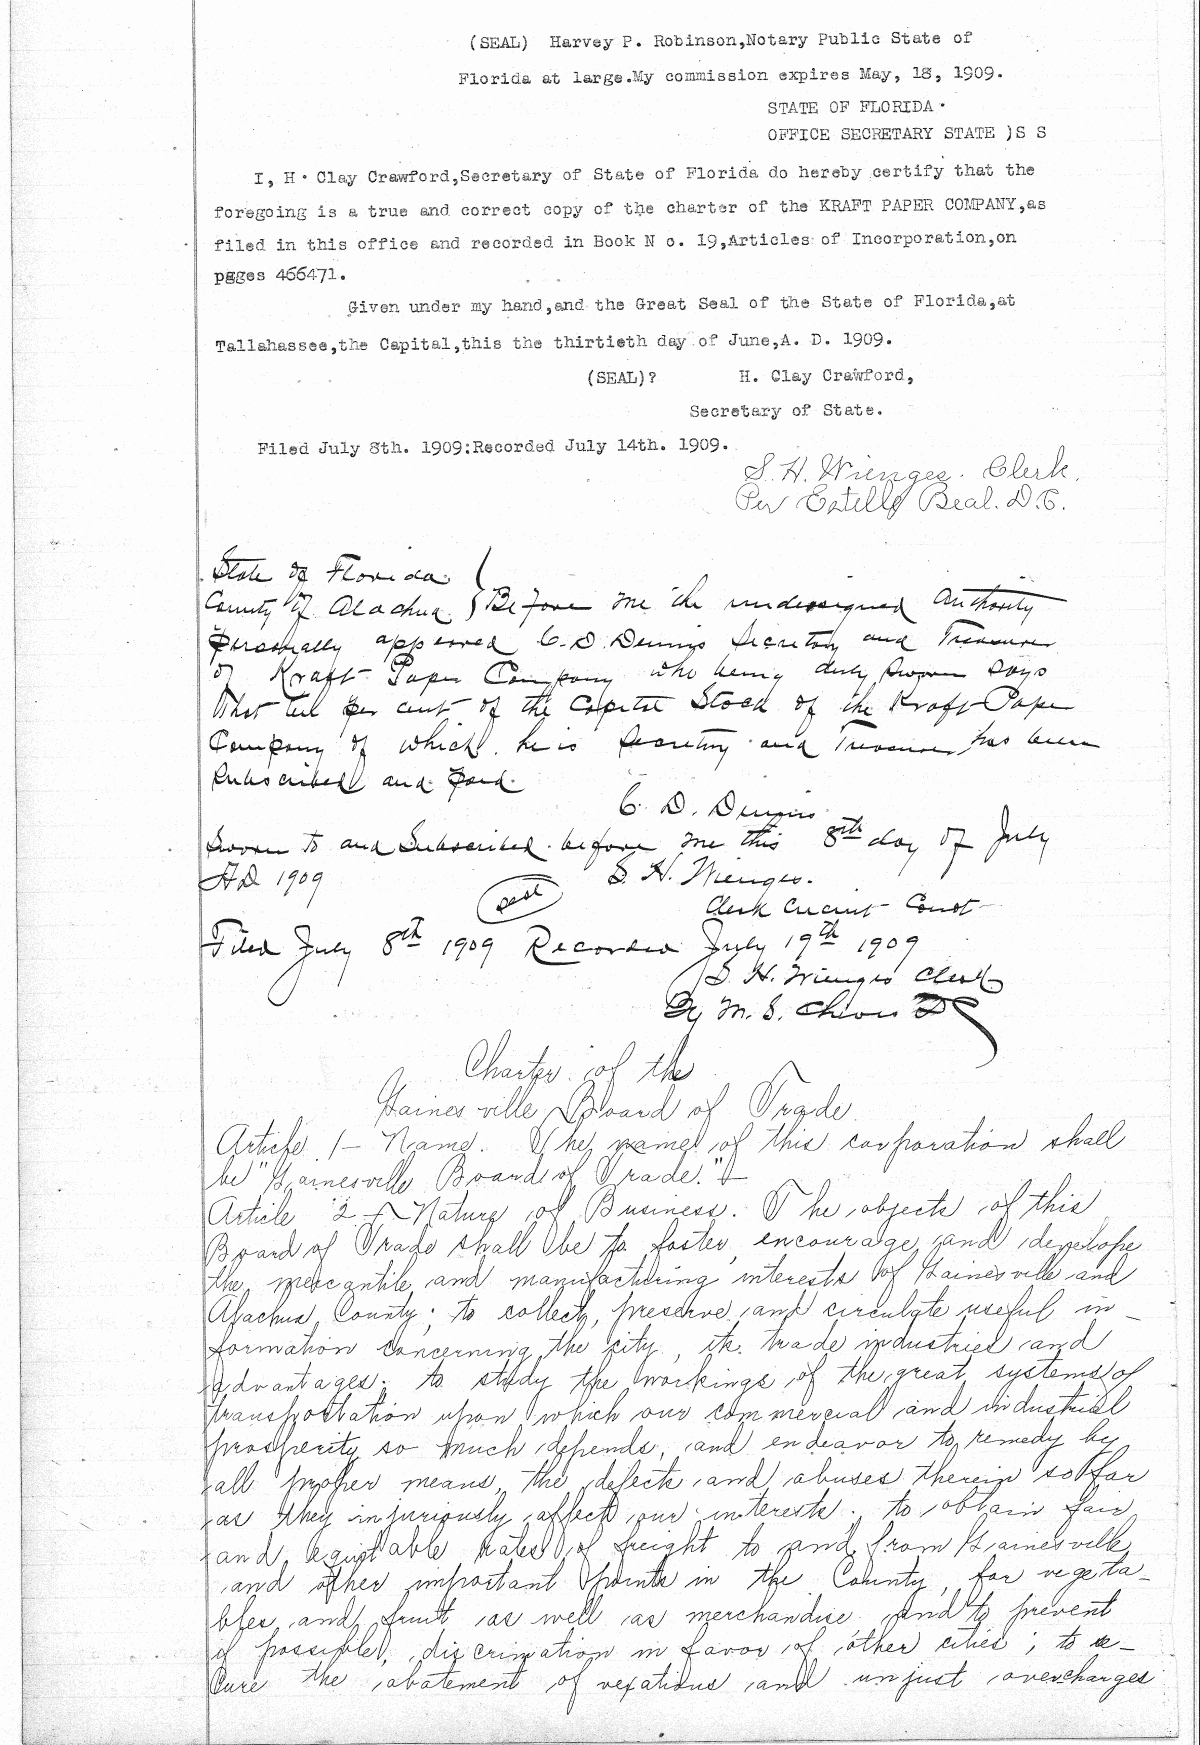 (SEAL) Harvey P. Robinson,Notary Public State of
Florida at large.My commission expires May, 18, 1909.
STATE OF FLORIDA.
OFFICE SECRETARY STATE )S S
I, H. Clay Crawford,Secretary of State of Florida do hereby certify that the
foregoing is a true and correct copy of the charter of the KRAFT PAPER COMPANY,as
filed in this office and recorded in Book N o. 19,Articles of Incorporation,on
pgges 466471.
Given under my hand,and the Great Seal of the State of Florida,at
Tallahassee,the Capital,this the thirtieth day of June,A. D. 1909.
(SEAL)? H. Clay Crawford,
Secretary of State.
Filed July 8th. 1909:Recorded July 14th. 1909.
S. H. Wienges. Clerk.
Per Estelle Beal. D.C.
State of Florida }
County of Alachua } Before me the undersigned authority
personally appeared C. D. Dennis Secretary and Treasurer
of Kraft Paper Company who being duly sworn says
that ten per cent. of the Capital Stock of the Kraft Paper
Company of which he is Secretary and Treasurer has been
subscribed and paid.
C. D. Dennis
Sworn to and Subscribed before me this 8th day of July
AD 1909 S. H. Wienges.
seal
Clerk Circuit Court
Filed July 8th 1909 Recorded July 19th 1909
S. H. Wienges Clerk
By M. S. DC
Charter of the
Gainesville Board of Trade
Article 1- Name. The name of this corporation shall
be "Gainesville Board of Trade."
Article 2 - Nature of Business. The objects of this
Board of Trade shall be to foster, encourage and develope
the mercantile and manufacturing interests of Gainesville and
Alachua County; to collect, preserve and circulate useful in-
formation concerning the city, its trade industries and
advantages; to study the workings of the great systems of
transportation upon which our commercial and industrial
prosperity so much depends, and endeavor to remedy by
all proper means, the defects and abuses therein so far
as they injuriously affect our interests; to obtain fair
and equitable rates of freight to and from Gainesville
and other important points in the County, for vegeta-
bles and fruit as well as merchandise and to prevent
if possible, discrimation in favor of other cities; to se-
cure the abatement of vexatious and unjust overcharges